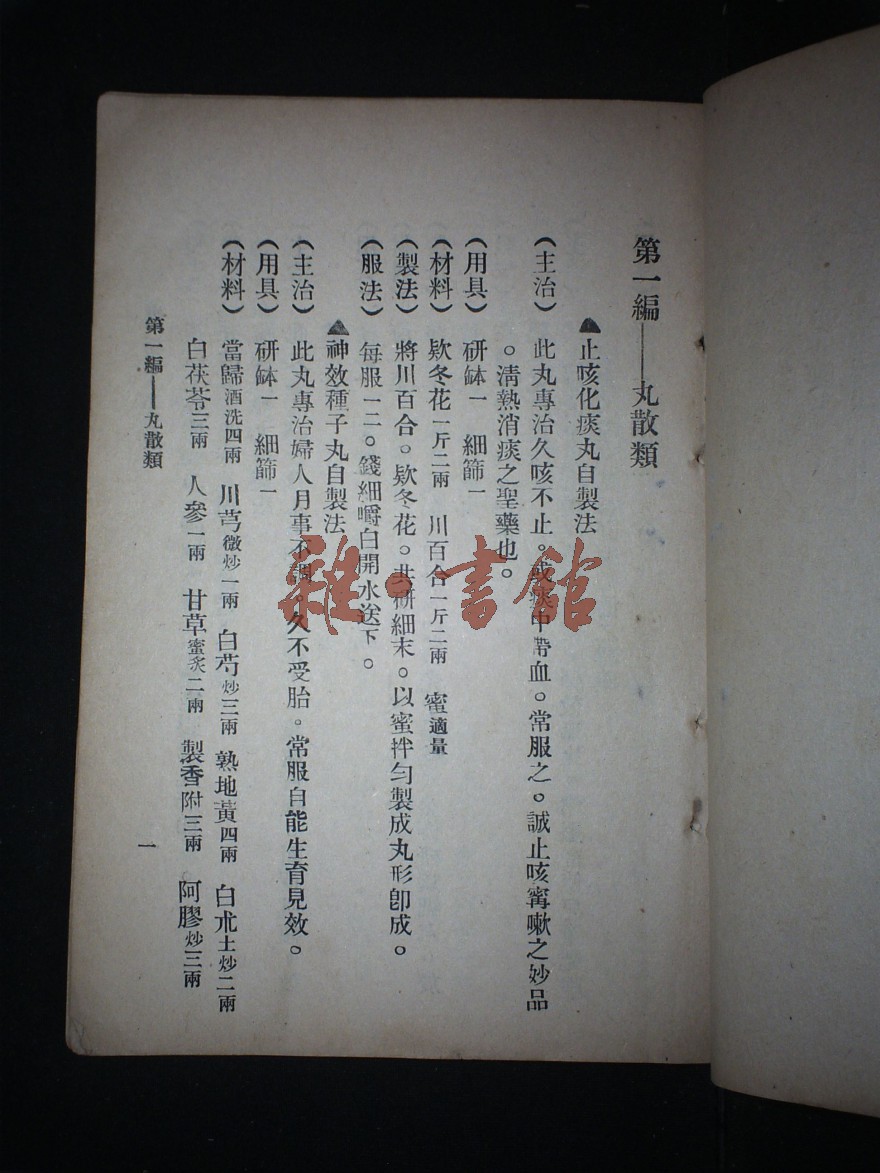 第一編——丸散類
▲止咳化痰丸自製法
(主治) 此丸專治久咳不止。或痰中帶血。常服之。誠止咳寗嗽之妙品
。清熱消痰之聖藥也。
(用具) 研缽一 細篩一
(材料) 欵冬花一斤二兩 川百合一斤二兩 蜜適量
(製法) 將川百合。欵冬花。共研細末。以蜜拌勻製成丸形卽成。
(服法) 每服一二。錢細嚼白開水送下。
▲神效種子丸自製法
(主治) 此丸專治婦人月事不調。久不受胎。常服自能生育見效。
(用具) 研缽一 細篩一
(材料) 當歸酒洗四兩 川芎微炒一兩 白芍炒三兩 熟地黃四兩 白朮土炒二兩
白茯苓三兩 人參一兩 甘草蜜炙二兩 製香附三兩 阿膠炒三兩
第一編——丸散類
一
雜·書館